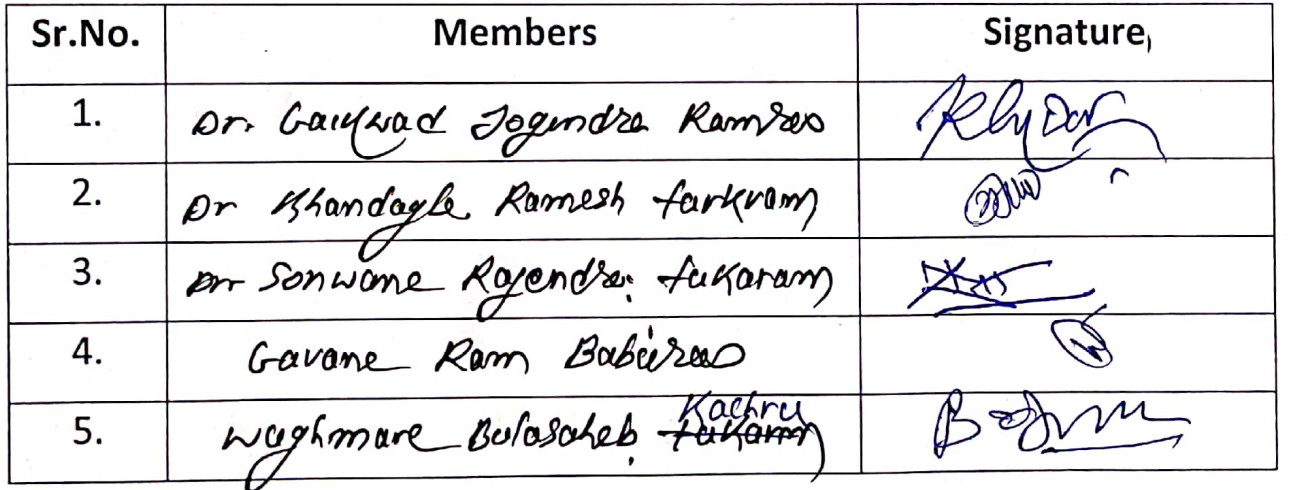 Sr.No. Members Signature
1. Dr. Gaikwad Jogendra Ramrao
2. Dr Khandagle Ramesh tarkram
3. Dr Sonwane Rajendra tukaram
4. Gavane Ram Baburao
Kachru
5. Waghmare Balasaheb tukaram